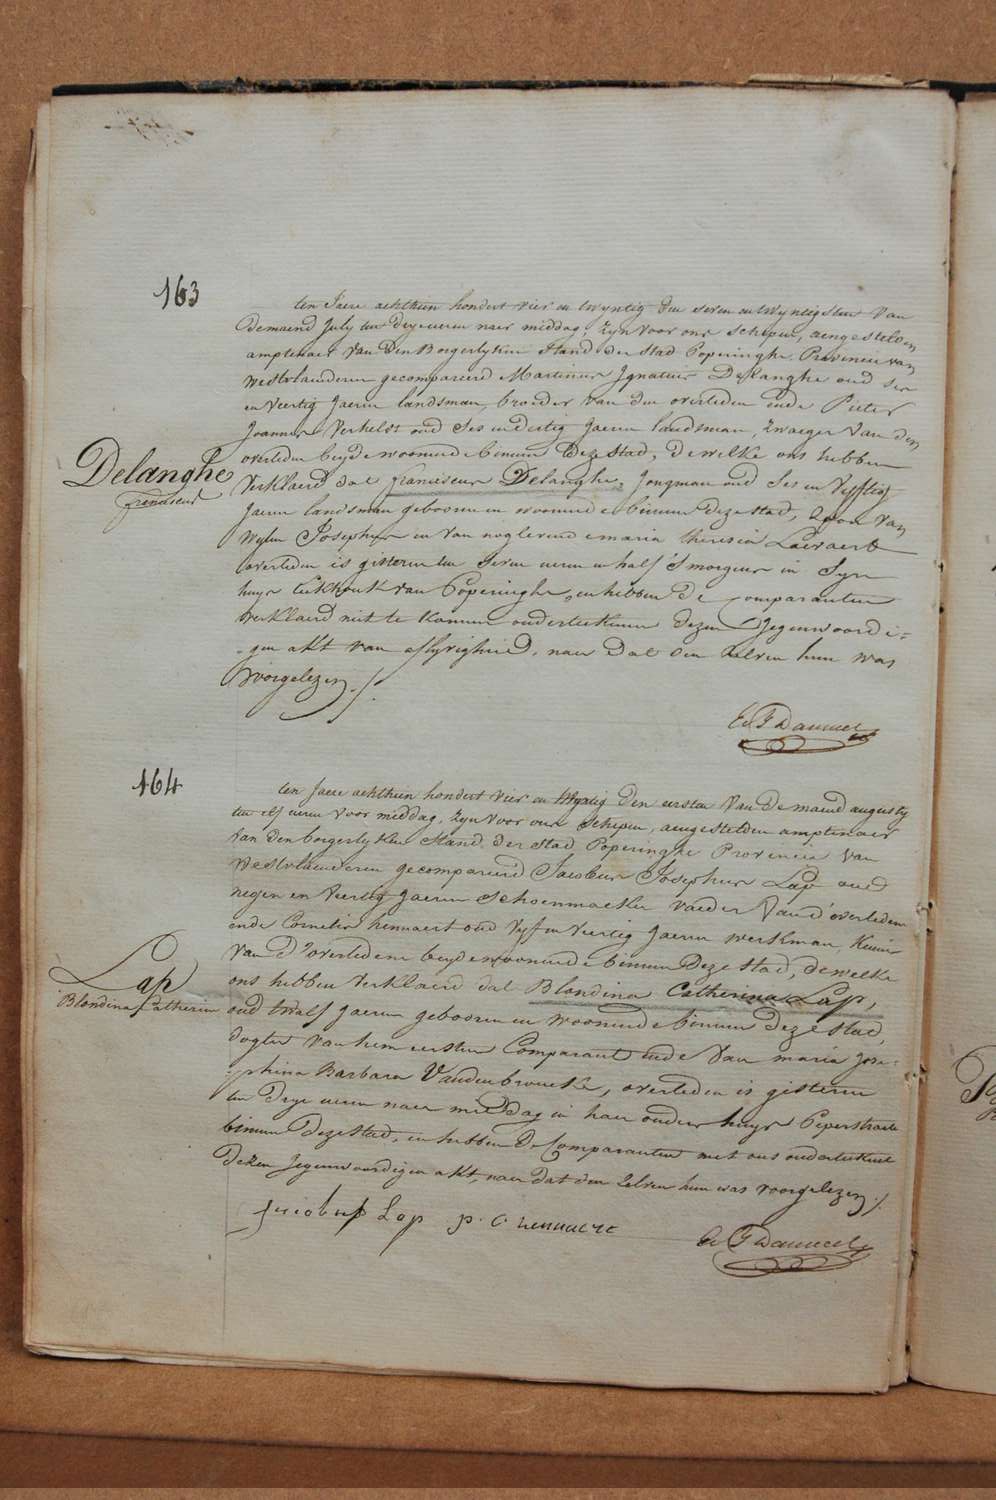 163
ten Jaere achthien hondert vier en twyntig den seven en twyntigsten van
de maend July ten drye uren naer middag, zyn voor ons schepen, aengestelden
amptenaer van den Borgerlyken Stand der Stad Poperinghe Provincie van
Westvlaenderen gecompareerd Martinus Ignatius Delanghe oud ses
en Veertig Jaeren landsman, broeder van den overleden ende Pieter
Joannes Verhelst oud ses en dertig Jaeren landsman, zwaeger van den
overleden beyde woonende binnen deze stad, dewelke ons hebben
Verklaerd dat franciscus Delanghe, Jongman oud ses en vyftig
Delanghe
franciscus
Jaeren landsman gebooren en woonende binnen deze stad, Zoon van
wylen Josephus en van nog levende maria theresia Lievaert
overleden is gisteren ten seven uren en half 's morgens in syn
huys Eekhoek van Poperinghe, en hebben de Comparanten
verklaerd niet te konnen onderteekenen dezen Jegenwoordi=
=gen akt van aflyvigheid, naer dat den zelven hun was
Voorgelezen ./.
Ed F Dauwel
164
ten Jaere achthien hondert vier en twyntig den eersten van de maend augusty
ten elf uren voor middag, zyn voor ons schepen, aengestelden amptenaer
van den borgerlyken Stand der stad Poperinghe Provincie van
Westvlaenderen gecompareerd Jacobus Josephus Lap oud
negen en Veertig Jaeren Schoenmaeker vaeder van d'overledene
ende Cornelis hennaert oud vyf en Veertig Jaeren werkman, Kennis
van d'overledene beyde woonende binnen deze stad, dewelke
ons hebben verklaerd dat Blondina Catherina Lap,
Lap
Blondina Catherina
oud twalf Jaeren gebooren en woonende binnen deze stad,
dogter van hem eersten Comparant ende van maria Jose=
=phina Barbara Vandenbroucke, overleden is gisteren
ten drye uren naer middag in haer ouders huys Peperstraete
binnen deze stad, en hebben de Comparanten met ons onderteekent
dezen Jegenwoordigen akt, naer dat den zelven hun was voorgelezen ./.
Jacobus Lap p. C hennaert
Ed F Dauwel